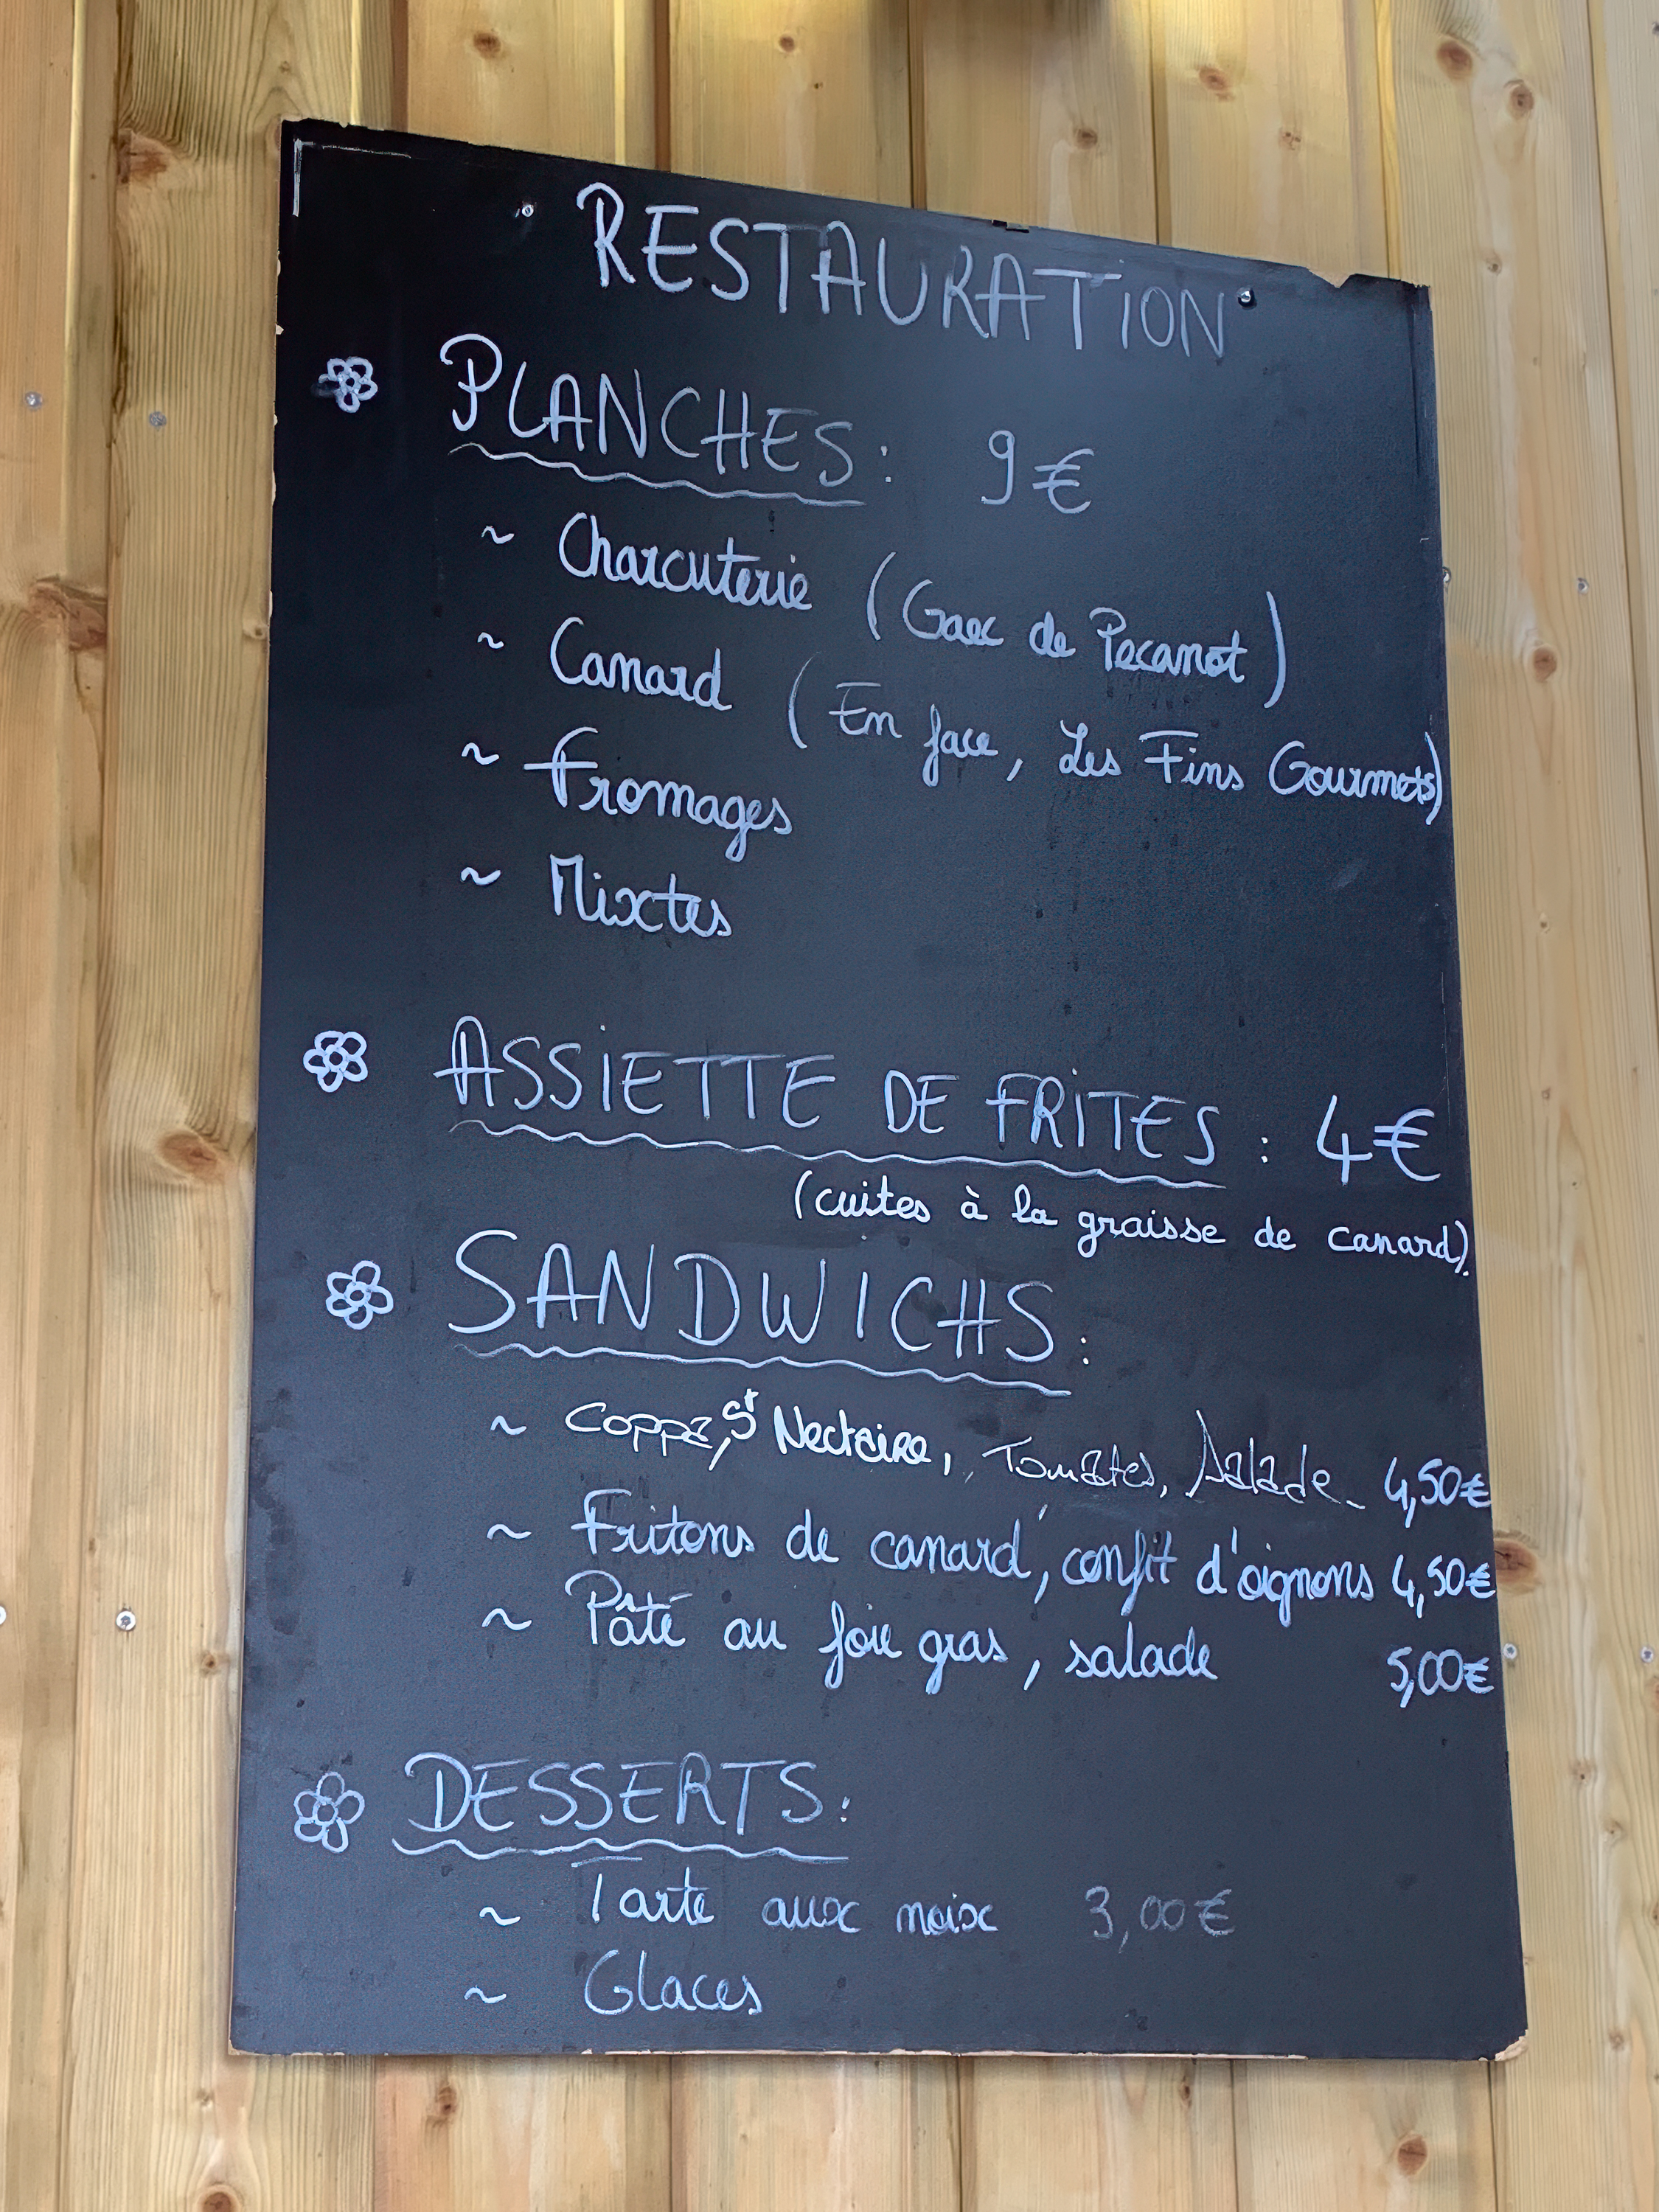 RESTAURATION
PLANCHES : 9€
~ Charcuterie (Gaec de Pecanot)
~ Canard (En face, Les Fins Gourmets)
~ Fromages
~ Mixtes
ASSIETTE DE FRITES : 4€
(cuites à la graisse de canard).
SANDWICHS :
~ Coppa, St Nectaire, Tomates, Salade - 4,50€
~ Fritons de canard, confit d'oignons 4,50€
~ Pâté au foie gras, salade 5,00€
DESSERTS :
~ Tarte aux noix 3,00€
~ Glaces